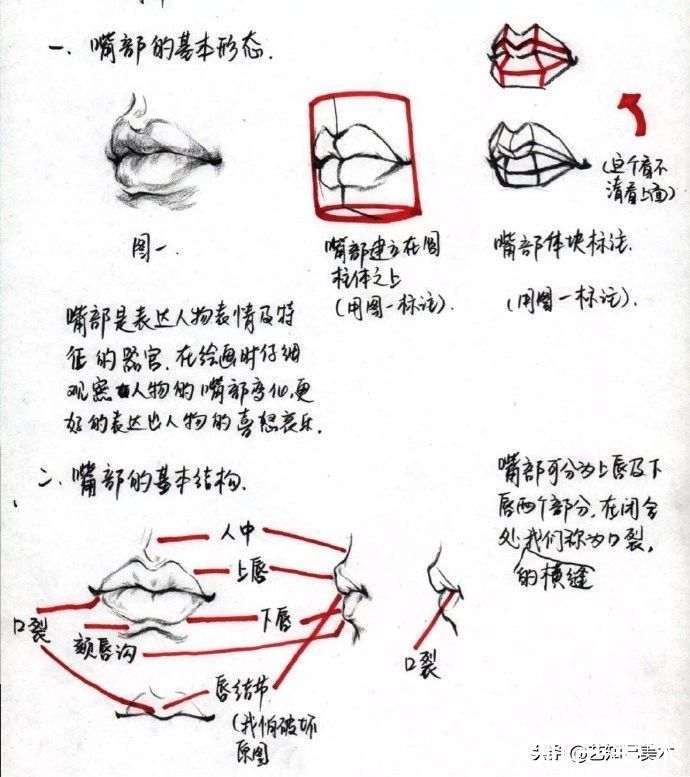 一、嘴部的基本形态.
图一
嘴部建立在圆
柱体之上
(用图一标注).
(这个看不
清看上面)
嘴部体块标注.
(用图一标注).
嘴部是表达人物表情及特
征的器官.在绘画时仔细
观察人物的嘴部变化,更
好的表达出人物的喜怒哀乐.
二、嘴部的基本结构.
嘴部可分为上唇及下
唇两个部分,在闭合
处我们称为口裂,
的横缝
人中
上唇
口裂
下唇
颏唇沟
口裂
唇结节
(我怕破坏
原图
头条@艺知二美术